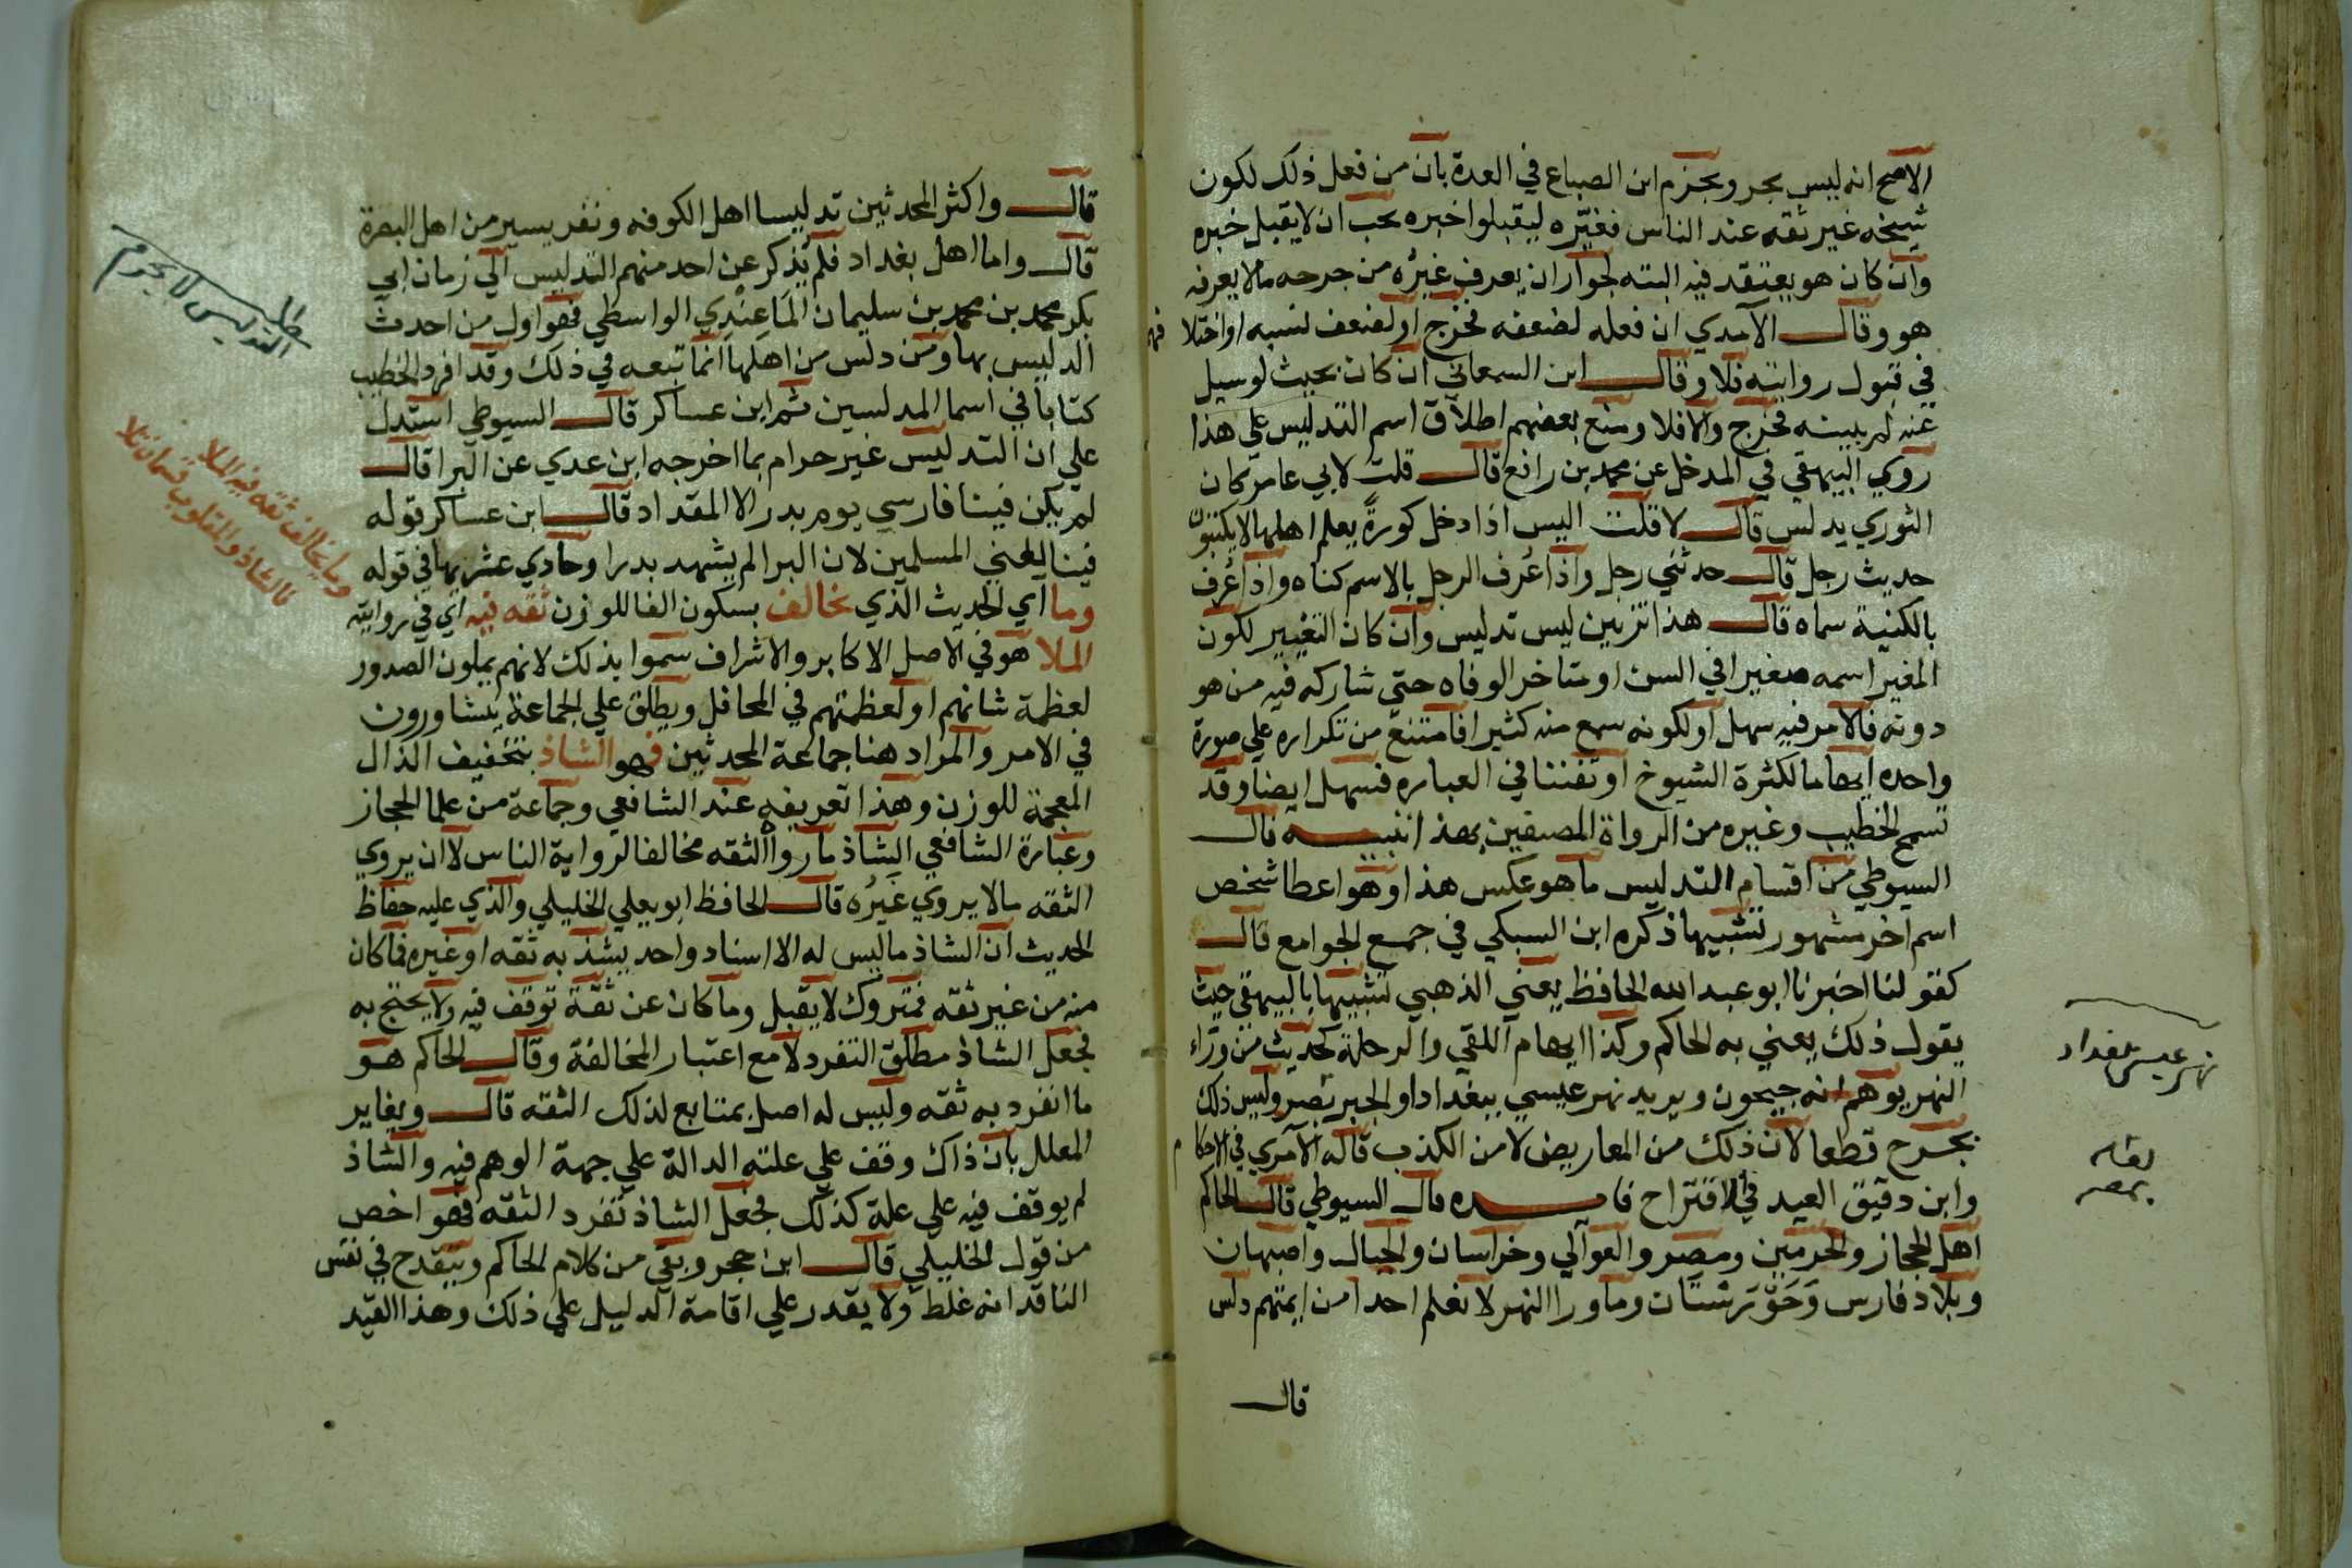 الاصح انه ليس بجرو بجزم ابن الصباع في العدة بان من فعل ذلك لكون
شيخه غير ثقه عند الناس فغيّره ليقبلوا خبره يجب ان لا يقبل خبره
وان كان هو يعتقد فيه الثقه لجواز ان يعرف غيرُه من جرحه مالا يعرفه
هو وقال الآمدي ان فعله لضعفه فجرح او لضعف نسبه او اختلا فهم
في قبول روايته فلا وقال ابن السمعاني ان كان بحيث لوسيل
عنه لم يبينه فجرح والا فلا ومنع بعضهم اطلاق اسم التدليس علي هذا
روي البيهقي في المدخل عن محمد بن رافع قال قلت لابي عامر كان
الثوري يدلس قال لا قلت اليس اذا دخل كورةً يعلم اهلها لا يكتبون
حديث رجل قال حدثني رجل واذا عُرف الرجل بالاسم كناه واذا عُرف
بالكنية سماه قال هذا تزيين ليس تدليس وان كان التغيير لكون
المغير اسمه صغيرا في السن او متاخر الوفاه حتي شاركه فيه من هو
دونه فالامر فيه سهل او لكونه سمع منه كثيرا فامتنع من تكراره علي صورة
واحده ايهاما لكثرة الشيوخ او تفننا في العباره فسهل ايضا وقد
تسمح الخطيب وغيره من الرواة المصنفين بهذا تنبيه قال
السيوطي من اقسام التدليس ما هو عكس هذا وهو اعطا شخص
اسم اخر مشهور تشبيها ذكره ابن السبكي في جمع الجوامع قال
كقولنا اخبرنا ابو عبد الله الحافظ يعني الذهبي تشبيها بالبيهقي حيث
يقول ذلك يعني به الحاكم وكذا ايهام اللقي والرحلة كحديث من وراء
النهر يوهم انه جيحون ويريد نهر عيسي ببغداد او الجيز بمصر وليس ذلك
بجرح قطعا لان ذلك من المعاريض لا من الكذب قاله الآمدي في الاحكام
وابن دقيق العيد في الاقتراح فايده قال السيوطي قال الحاكم
اهل الحجاز والحرمين ومصر والعوالي وخراسان والجبال واصبهان
وبلاد فارس وَخَوّزَسْتَان وما ورا النهر لا نعلم احدا من ايمتهم دلس
قال
نهر عيسي ببغداد
بمصر
قال واكثر المحدثين تدليسا اهل الكوفه ونفر يسير من اهل البصرة
قال واما اهل بغداد فلم يُذكر عن احد منهم التدليس الي زمان ابي
بكر محمد بن محمد بن سليمان البَاغِنْدِي الواسطي فهو اول من احدث
التدليس بها ومن دلس من اهلها انما تبعه في ذلك وقد افرد الخطيب
كتابا في اسما المدلسين ثم ابن عساكر قال السيوطي استدل
علي ان التدليس غير حرام بما اخرجه ابن عدي عن البرا قال
لم يكن فينا فارسي يوم بدر الا المقداد قال ابن عساكر قوله
فينا يعني المسلمين لان البرا لم يشهد بدرا وحادي عشريها في قوله
وما اي الحديث الذي يخالف بسكون الفا للوزن ثقه فيه اي في روايته
الملا هو في الاصل الاكابر والاشراف سموا بذلك لانهم يملون الصدور
لعظمة شانهم او لعظمتهم في المحافل ويطلق علي الجماعة يتشاورون
في الامر والمراد هنا جماعة المحدثين فهو الشاذ بتخفيف الذال
المعجمة للوزن وهذا تعريفه عند الشافعي وجماعة من علما الحجاز
وعبارة الشافعي الشاذ ما رواه الثقه مخالفا لرواية الناس لا ان يروي
الثقه مالا يروي غَيرُه قال الحافظ ابو يعلي الخليلي والذي عليه حفاظ
الحديث ان الشاذ ما ليس له الا اسناد واحد يشذ به ثقه او غيره فما كان
منه من غير ثقه فمتروك لا يقبل وما كان عن ثقة توقف فيه ولا يحتج به
فجعل الشاذ مطلق التفرد لا مع اعتبار المخالفة وقال الحاكم هو
ما انفرد به ثقه وليس له اصل بمتابع لذلك الثقه قال ويغاير
المعلل بان ذاك وقف علي علته الدالة علي جهة الوهم فيه والشاذ
لم يوقف فيه علي علة كذلك فجعل الشاذ تفرد الثقه فهو اخص
من قول الخليلي قال ابن حجر وبقي من كلام الحاكم وينقدح في نفس
الناقد انه غلط ولا يقدر علي اقامة الدليل علي ذلك وهذا القيد
التدليس لا يحرم
وما يخالف ثقه فيه الملا
فالشاذ والمقلوب قسمان تلا